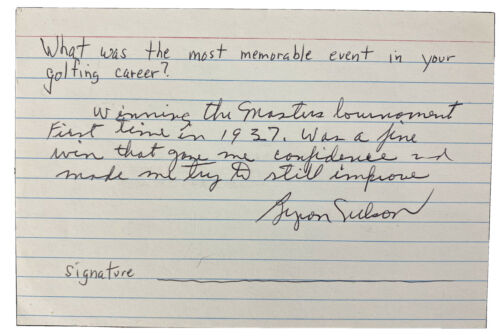 What was the most memorable event in your
golfing career?
Winning the Masters Tournament
First time in 1937. Was a fine
win that gave me confidence and
made me try to still improve
Byron Nelson
Signature